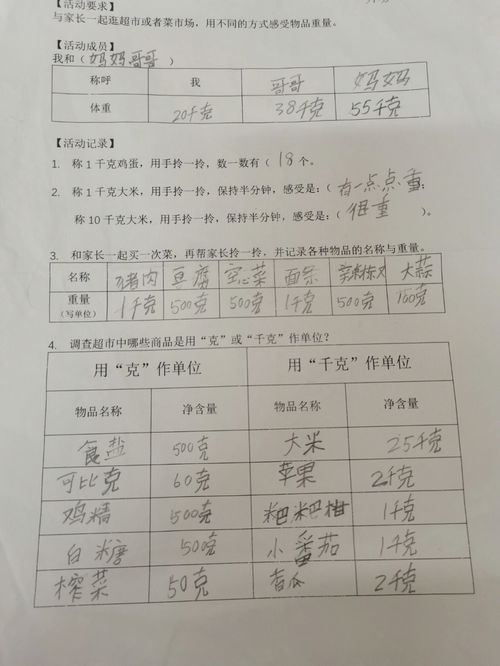 【活动要求】
与家长一起逛超市或者菜市场，用不同的方式感受物品重量。
【活动成员】
我和（妈妈哥哥）
称呼 我 哥哥 妈妈
体重 20千克 38千克 55千克
【活动记录】
1. 称1千克鸡蛋，用手拎一拎，数一数有（18个。
2. 称1千克大米，用手拎一拎，保持半分钟，感受是：（有一点点重；
称10千克大米，用手拎一拎，保持半分钟，感受是：（很重）。
3. 和家长一起买一次菜，再帮家长拎一拎，并记录各种物品的名称与重量。
名称 猪肉 豆腐 空心菜 面条 大蒜
重量 1千克 500克 500克 1千克 500克 100克
（写单位）
4. 调查超市中哪些商品是用“克”或“千克”作单位？
用“克”作单位 用“千克”作单位
物品名称 净含量 物品名称 净含量
食盐 500克 大米 25千克
可比克 60克 苹果 2千克
鸡精 500克 粑粑柑 1千克
白糖 500克 小番茄 1千克
榨菜 50克 香瓜 2千克